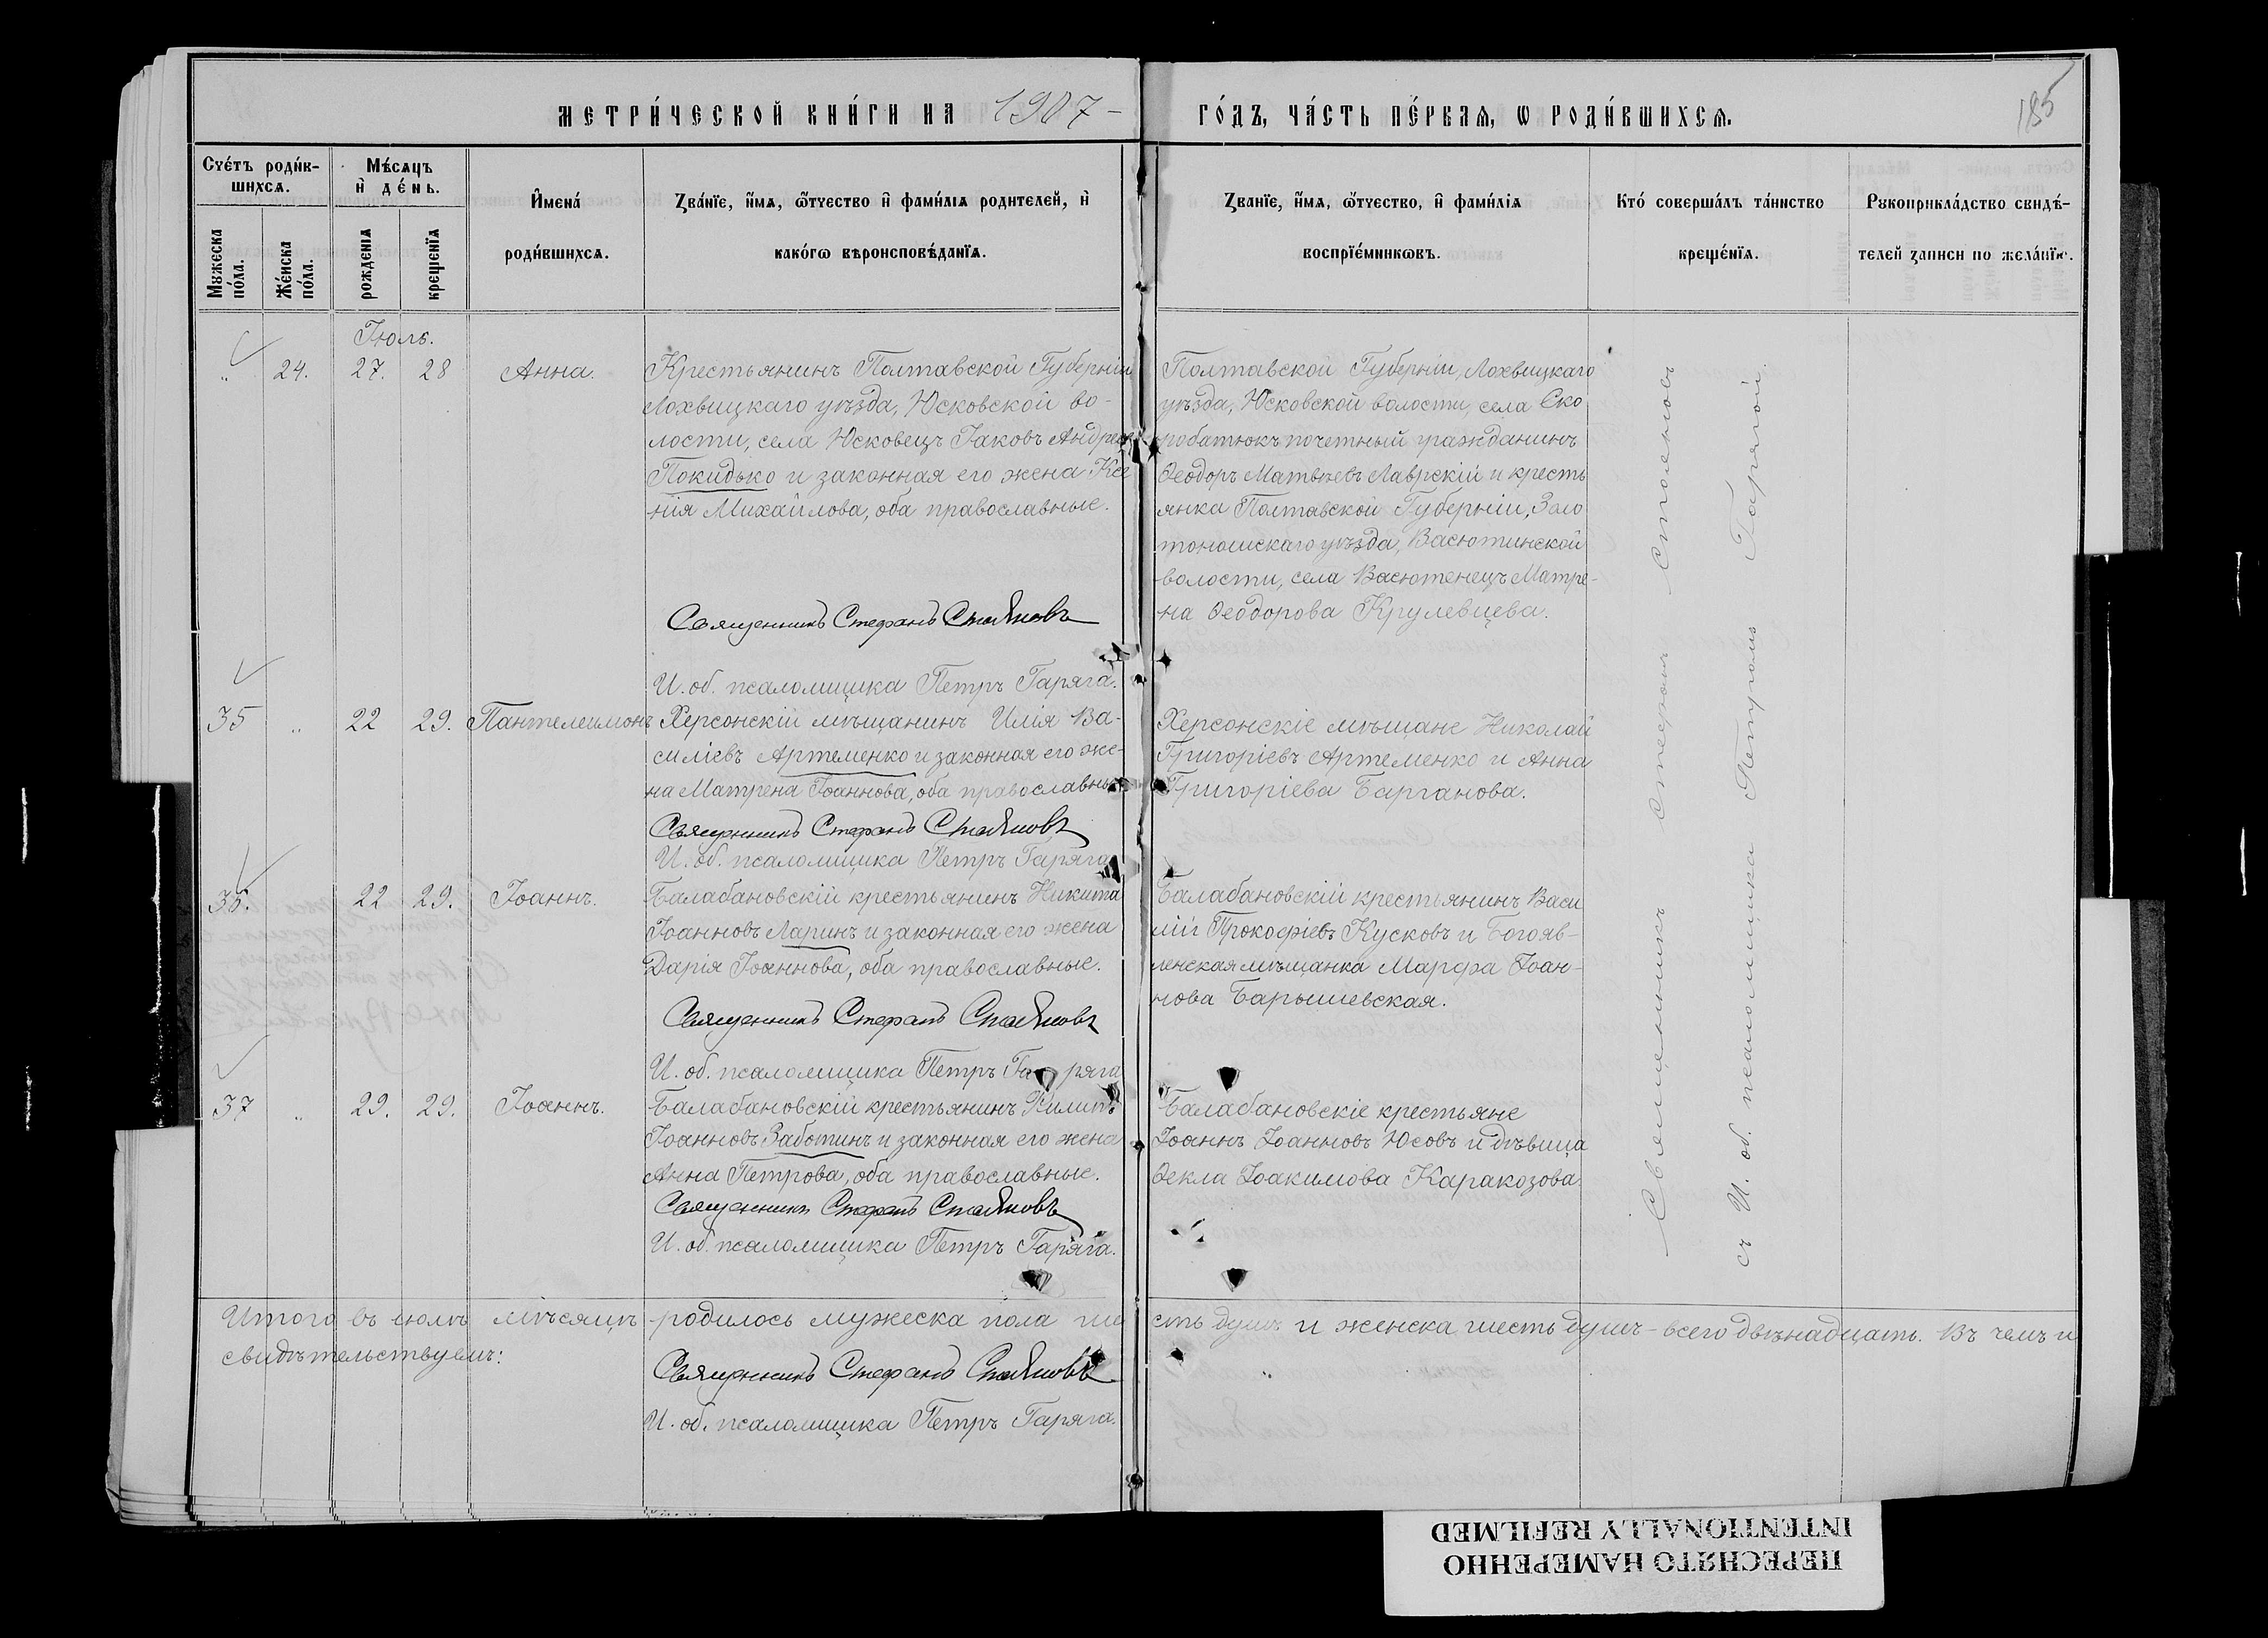 МЕТРИ́ЧЕСКОЙ КНИ́ГИ НА 1907 –
ГО́ДЪ, ЧА́СТЬ ПЕ́РВАЯ, Ѡ РОДИ́ВШИХСѦ.
185
Счетъ роди́в-
шихсѧ.
Мѣ́сѧцъ
и де́нь.
Мꙋжеска
по́ла.
Же́нска
по́ла.
рожденїѧ
крещенїѧ
Имена́
роди́вшихсѧ.
Зва́нїе, имѧ, ѻтчество и фами́лїѧ родителей, и
како́гѡ вѣроисповѣ́данїѧ.
Званїе, имѧ, ѻтчество, и фами́лїѧ
воспрїе́мникѡвъ.
Кто́ соверша́лъ та́инство
креще́нїѧ.
Рꙋкоприкла́дство свидѣ́-
телей записи по жела́нїю.
Іюль.
" 24. 27. 28 Анна.
Крестьянинъ Полтавской Губерніи
Лохвицкаго уѣзда, Юсковской во-
лости, села Юсковецъ Іаковъ Андреев
Покидько и законная его жена Ксе
нія Михайлова, оба православные.
Священникъ Стефанъ Стояновъ
И. об. псаломщика Петръ Гаряга.
Полтавской Губерніи, Лохвицкаго
уѣзда, Юсковской волости, села Ско
робатюкъ почетный гражданинъ
Ѳеодоръ Матвѣевъ Лаврскій и кресть
янка Полтавской Губерніи, Золо
тоношскаго уѣзда, Васютинской
волости, села Васютенецъ Матре-
на Ѳеодорова Крулевцева.
35 " 22 29. Пантелеимонъ
Херсонскій мѣщанинъ Илія Ва-
силіевъ Артеменко и законная его же-
на Матрена Іоаннова, оба православные
Священникъ Стефанъ Стояновъ
И. об. псаломщика Петръ Гаряга
Херсонскіе мѣщане Николай
Григоріевъ Артеменко и Анна
Григоріева Барганова.
36. 22 29. Іоаннъ.
Балабановскій крестьянинъ Никита
Іоанновъ Ларинъ и законная его жена
Дарія Іоаннова, оба православные.
Священникъ Стефанъ Стояновъ
И. об. псаломщика Петръ Гаряга
Балабановскій крестьянинъ Васи
лій Прокофіевъ Кусковъ и Богояв-
ленская мѣщанка Марфа Іоан-
нова Барышевская.
37 " 29. 29. Іоаннъ.
Балабановскій крестьянинъ Филипъ
Іоанновъ Заботинъ и законная его жена
Анна Петрова, оба православные.
Священникъ Стефанъ Стояновъ
И. об. псаломщика Петръ Гаряга.
Балабановскіе крестьяне
Іоаннъ Іоанновъ Юсовъ и дѣвица
Ѳекла Іоакимова Каракозова.
Священникъ Стефанъ Стояновъ
съ И. об. псаломщика Петромъ Гарягой.
Итого въ іюлѣ мѣсяцѣ родилось мужеска пола ше сть душъ и женска шесть душъ – всего двѣнадцать. Въ чемъ и
свидѣтельствуемъ:
Священникъ Стефанъ Стояновъ
И. об. псаломщика Петръ Гаряга.
ПЕРЕСНЯТО НАМЕРЕННО
INTENTIONALLY REFILMED